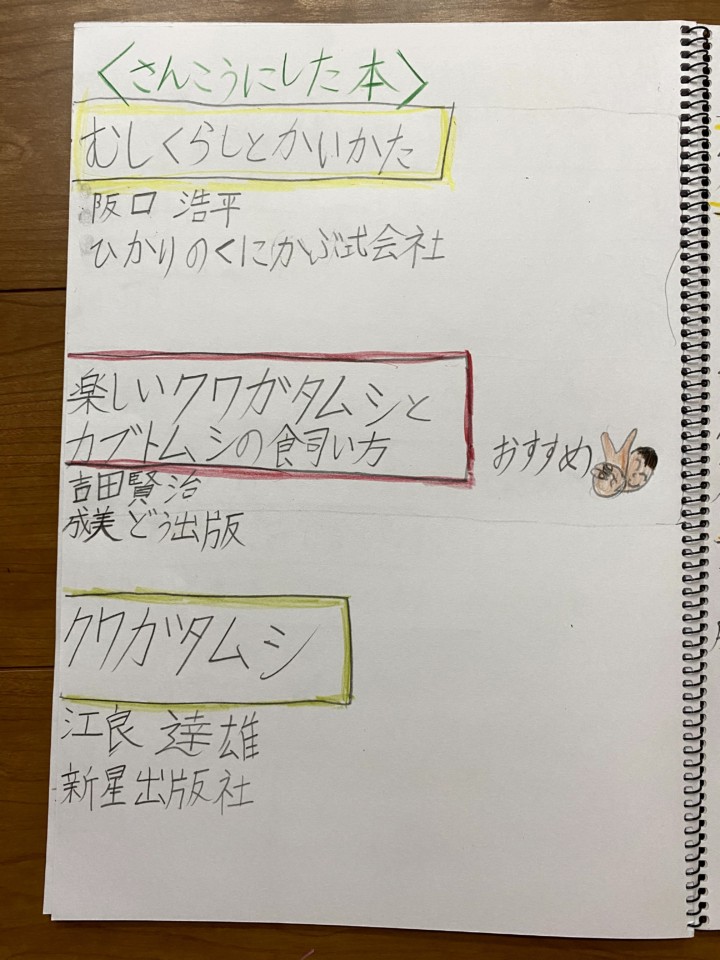 <さんこうにした本>
むしくらしとかいかた
阪口 浩平
ひかりのくにかぶ式会社
楽しいクワガタムシと
カブトムシの飼い方
おすすめ
吉田賢治
成美どう出版
クワガタムシ
江良 達雄
新星出版社